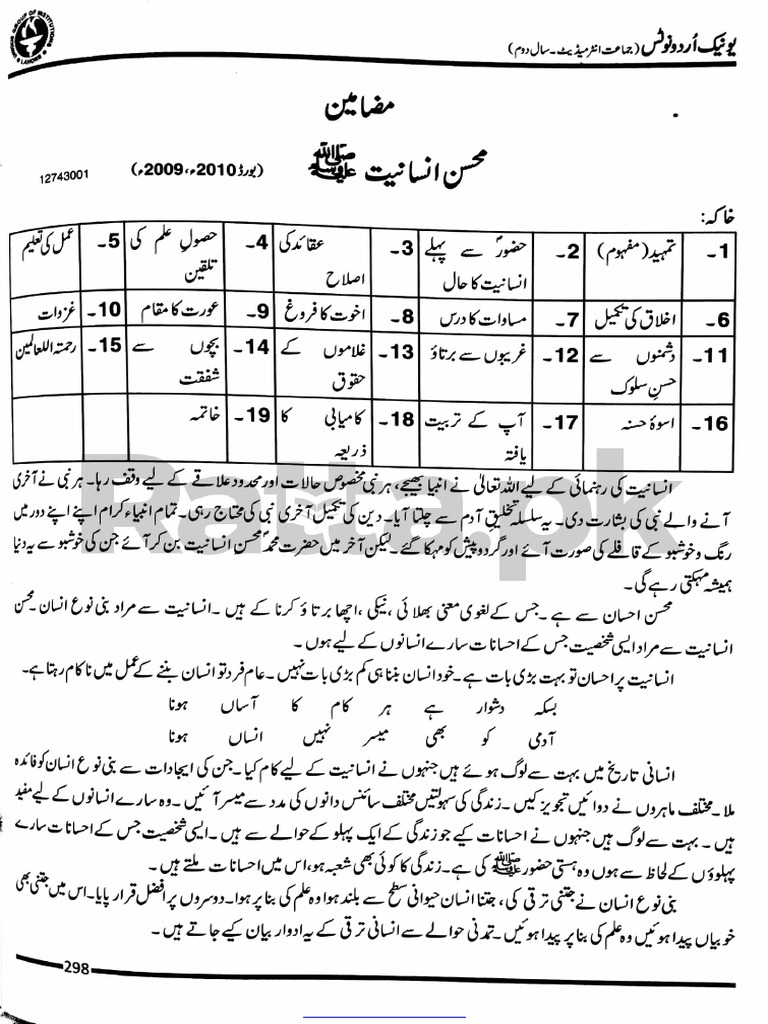 یونیک اُردو نوٹس (جماعت انٹرمیڈیٹ۔ سال دوم)
مضامین
محسن انسانیت ﷺ (بورڈ 2010ء، 2009ء) 12743001
خاکہ:
1۔ تمہید (مفہوم) 2۔ حضورؐ سے پہلے انسانیت کا حال 3۔ عقائد کی اصلاح 4۔ حصولِ علم کی تلقین 5۔ عمل کی تعلیم
6۔ اخلاق کی تکمیل 7۔ مساوات کا درس 8۔ اخوت کا فروغ 9۔ عورت کا مقام 10۔ غزوات
11۔ دشمنوں سے حسنِ سلوک 12۔ غریبوں سے برتاؤ 13۔ غلاموں کے حقوق 14۔ بچوں سے شفقت 15۔ رحمۃ اللعالمین
16۔ اسوۂ حسنہ 17۔ آپ کے تربیت یافتہ 18۔ کامیابی کا ذریعہ 19۔ خاتمہ
انسانیت کی رہنمائی کے لیے اللہ تعالیٰ نے انبیا بھیجے، ہر نبی مخصوص حالات اور محدود علاقے کے لیے وقف رہا۔ ہر نبی نے آخری
آنے والے نبی کی بشارت دی۔ یہ سلسلہ تخلیقِ آدم سے چلتا آیا۔ دین کی تکمیل آخری نبی کی محتاج رہی۔ تمام انبیاء کرام اپنے اپنے دور میں
رنگ و خوشبو کے قافلے کی صورت آئے اور گردو پیش کو مہکا گئے۔ لیکن آخر میں حضرت محمدؐ محسنِ انسانیت بن کر آئے جن کی خوشبو سے یہ دنیا
ہمیشہ مہکتی رہے گی۔
محسن احسان سے ہے۔ جس کے لغوی معنی بھلائی، نیکی، اچھا برتاؤ کرنا کے ہیں۔ انسانیت سے مراد بنی نوع انسان۔ محسن
انسانیت سے مراد ایسی شخصیت جس کے احسانات سارے انسانوں کے لیے ہوں۔
انسانیت پر احسان تو بہت بڑی بات ہے۔ خود انسان بننا ہی کم بڑی بات نہیں۔ عام فرد تو انسان بننے کے عمل میں ناکام رہتا ہے۔
بسکہ دشوار ہے ہر کام کا آساں ہونا
آدمی کو بھی میسر نہیں انساں ہونا
انسانی تاریخ میں بہت سے لوگ ہوئے ہیں جنہوں نے انسانیت کے لیے کام کیا۔ جن کی ایجادات سے بنی نوع انسان کو فائدہ
ملا۔ مختلف ماہروں نے دوائیں تجویز کیں۔ زندگی کی سہولتیں مختلف سائنس دانوں کی مدد سے میسر آئیں۔ وہ سارے انسانوں کے لیے مفید
ہیں۔ بہت سے لوگ ہیں جنہوں نے احسانات کیے جو زندگی کے ایک پہلو کے حوالے سے ہیں۔ ایسی شخصیت جس کے احسانات سارے
پہلوؤں کے لحاظ سے ہوں وہ ہستی حضور ﷺ کی ہے۔ زندگی کا کوئی بھی شعبہ ہو، اس میں احسانات ملتے ہیں۔
بنی نوع انسان نے جتنی ترقی کی، جتنا انسان حیوانی سطح سے بلند ہوا وہ علم کی بنا پر ہوا۔ دوسروں پر افضل قرار پایا۔ اس میں جتنی بھی
خوبیاں پیدا ہوئیں وہ علم کی بنا پر پیدا ہوئیں۔ تمدنی حوالے سے انسانی ترقی کے یہ ادوار بیان کیے جاتے ہیں۔
298
Ratta.pk